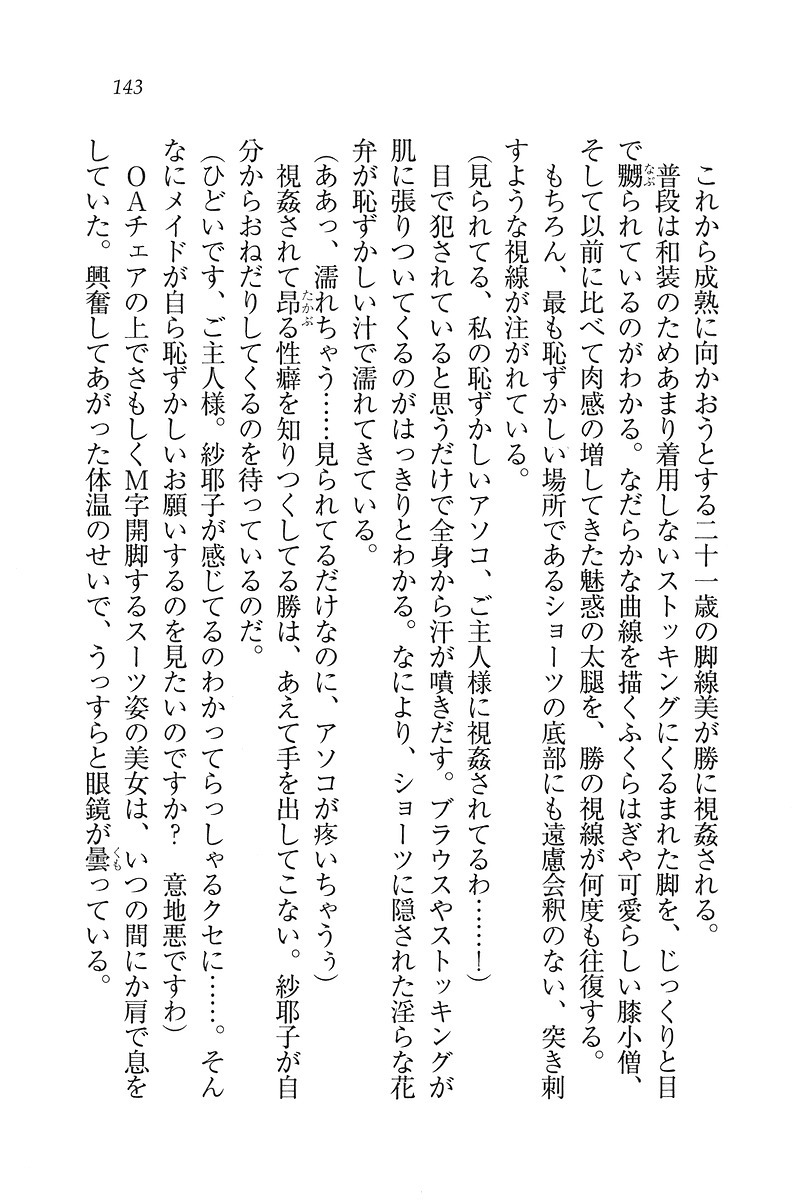 143
これから成熟に向かおうとする二十一歳の脚線美が勝に視姦される。
普段は和装のためあまり着用しないストッキングにくるまれた脚を、じっくりと目
で嬲られているのがわかる。なだらかな曲線を描くふくらはぎや可愛らしい膝小僧、
そして以前に比べて肉感の増してきた魅惑の太腿を、勝の視線が何度も往復する。
もちろん、最も恥ずかしい場所であるショーツの底部にも遠慮会釈のない、突き刺
すような視線が注がれている。
（見られてる、私の恥ずかしいアソコ、ご主人様に視姦されてるわ……！）
目で犯されていると思うだけで全身から汗が噴きだす。ブラウスやストッキングが
肌に張りついてくるのがはっきりとわかる。なにより、ショーツに隠された淫らな花
弁が恥ずかしい汁で濡れてきている。
（ああっ、濡れちゃう……見られてるだけなのに、アソコが疼いちゃうぅ）
視姦されて昂る性癖を知りつくしてる勝は、あえて手を出してこない。紗耶子が自
分からおねだりしてくるのを待っているのだ。
（ひどいです、ご主人様。紗耶子が感じてるのわかってらっしゃるクセに……。そん
なにメイドが自ら恥ずかしいお願いするのを見たいのですか？　意地悪ですわ）
ＯＡチェアの上でさもしくＭ字開脚するスーツ姿の美女は、いつの間にか肩で息を
していた。興奮してあがった体温のせいで、うっすらと眼鏡が曇っている。